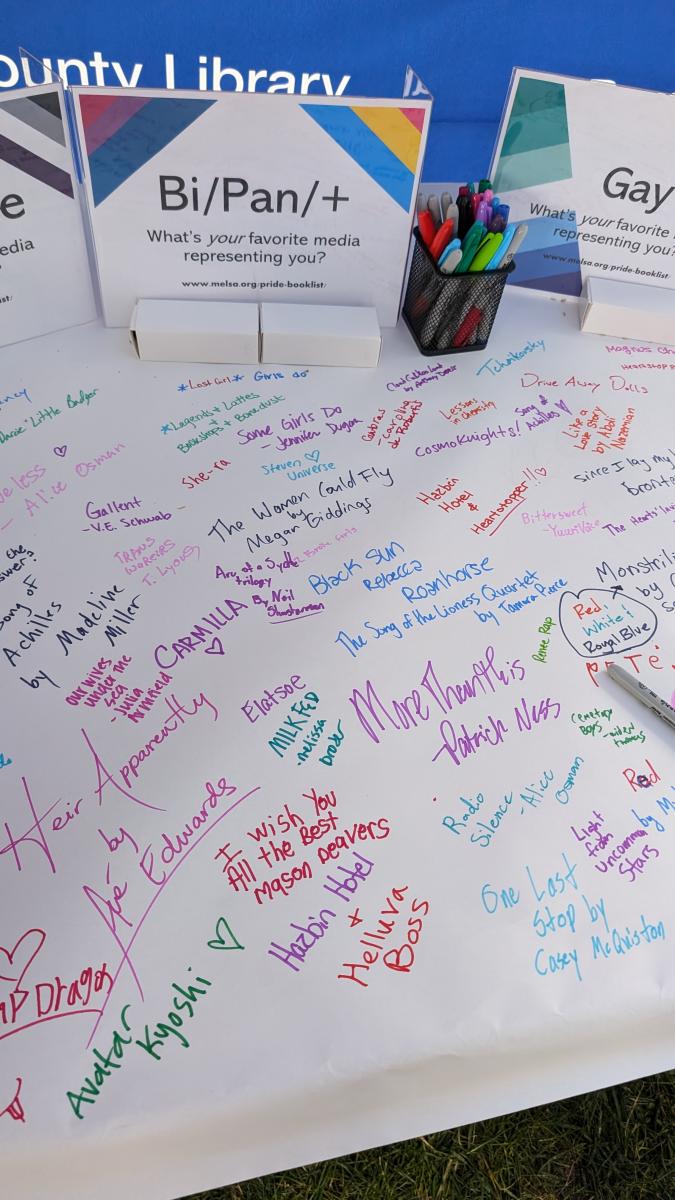 ounty Library
Bi/Pan/+
What's your favorite media
representing you?
www.melsa.org/pride-booklist/
e
edia
?
Gay
What's your favorite
representing you?
www.melsa.org/pride-bookl
*Lost Girl* Girls do
*Legends + Lattes
+
Bookshops + Bonedust
Some Girls Do
- Jennifer Dugan
Cloud Cuckoo Land
by Anthony Doerr
Tchaikovsky
Magnus Ch
Drive Away Dolls
Lessons
in chemistry
Song of
Achilles
Like a
Love Story
by Abdi
Nazemian
CosmoKnights!
Darcie Little Badger
- Alice Osman
She-ra
Steven ♡
Universe
Gallent
- V.E. Schwab
The Women Could Fly
by
Megan Giddings
Hazbin
Hotel
&
Heartstopper!!♡
since I lay my
bronte
Bittersweet
The Hearts Invi
TRANS
WARRIORS
T. Lyons
Arc of a Scythe
trilogy
By Neil
Shusterman
Black Sun
Rebecca
Roanhorse
The Song of the Lioness Quartet
by Tamora Pierce
Song of
Achilles
by Madeline
Miller
CARMILLA
♡
our wives
under the
sea
- Julia
Armfield
Renee Rap
Red,
White &
Royal Blue
Elatsoe
MILKFED
- melissa
broder
More Than this
Patrick Ness
Cemetery
Boys
- aiden
thomas
Heir Apparently
by
Edwards
Radio
Silence - Alice
Osman
Red
by M
Light
from
uncommon
Stars
I wish You
All the Best
Mason Deavers
Hazbin Hotel
+
Helluva
Boss
One Last
Stop by
Casey McQuiston
Avatar
Kyoshi ♡